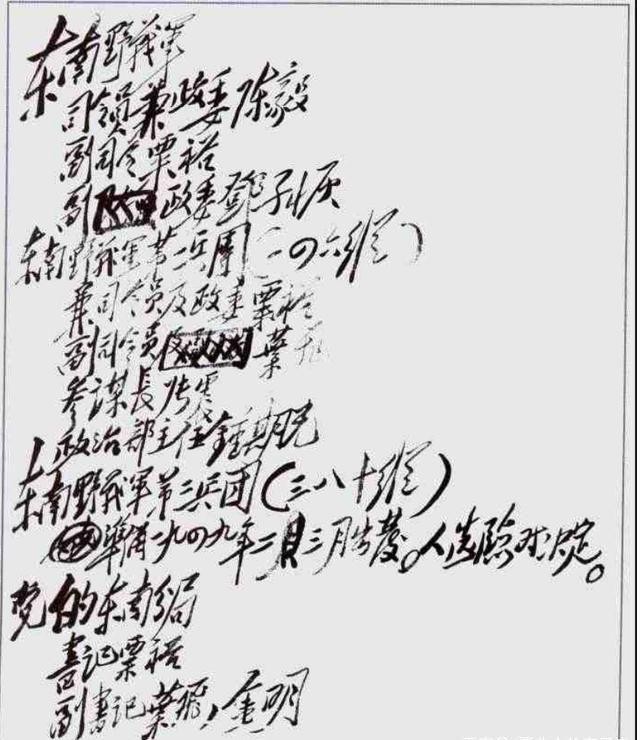 东南野战军
司令员兼政委陈毅
副司令粟裕
副政委鄧子恢
东南野战军第一兵團(一四六纵)
兼司令员及政委粟裕
副司令员葉飞
参謀長张震
政治部主任鍾期光
东南野战军第三兵团(三八十纵)
準備一九四九年二月三月出發。人选临时决定。
党的东南分局
書記粟裕
副書記葉飛,金明